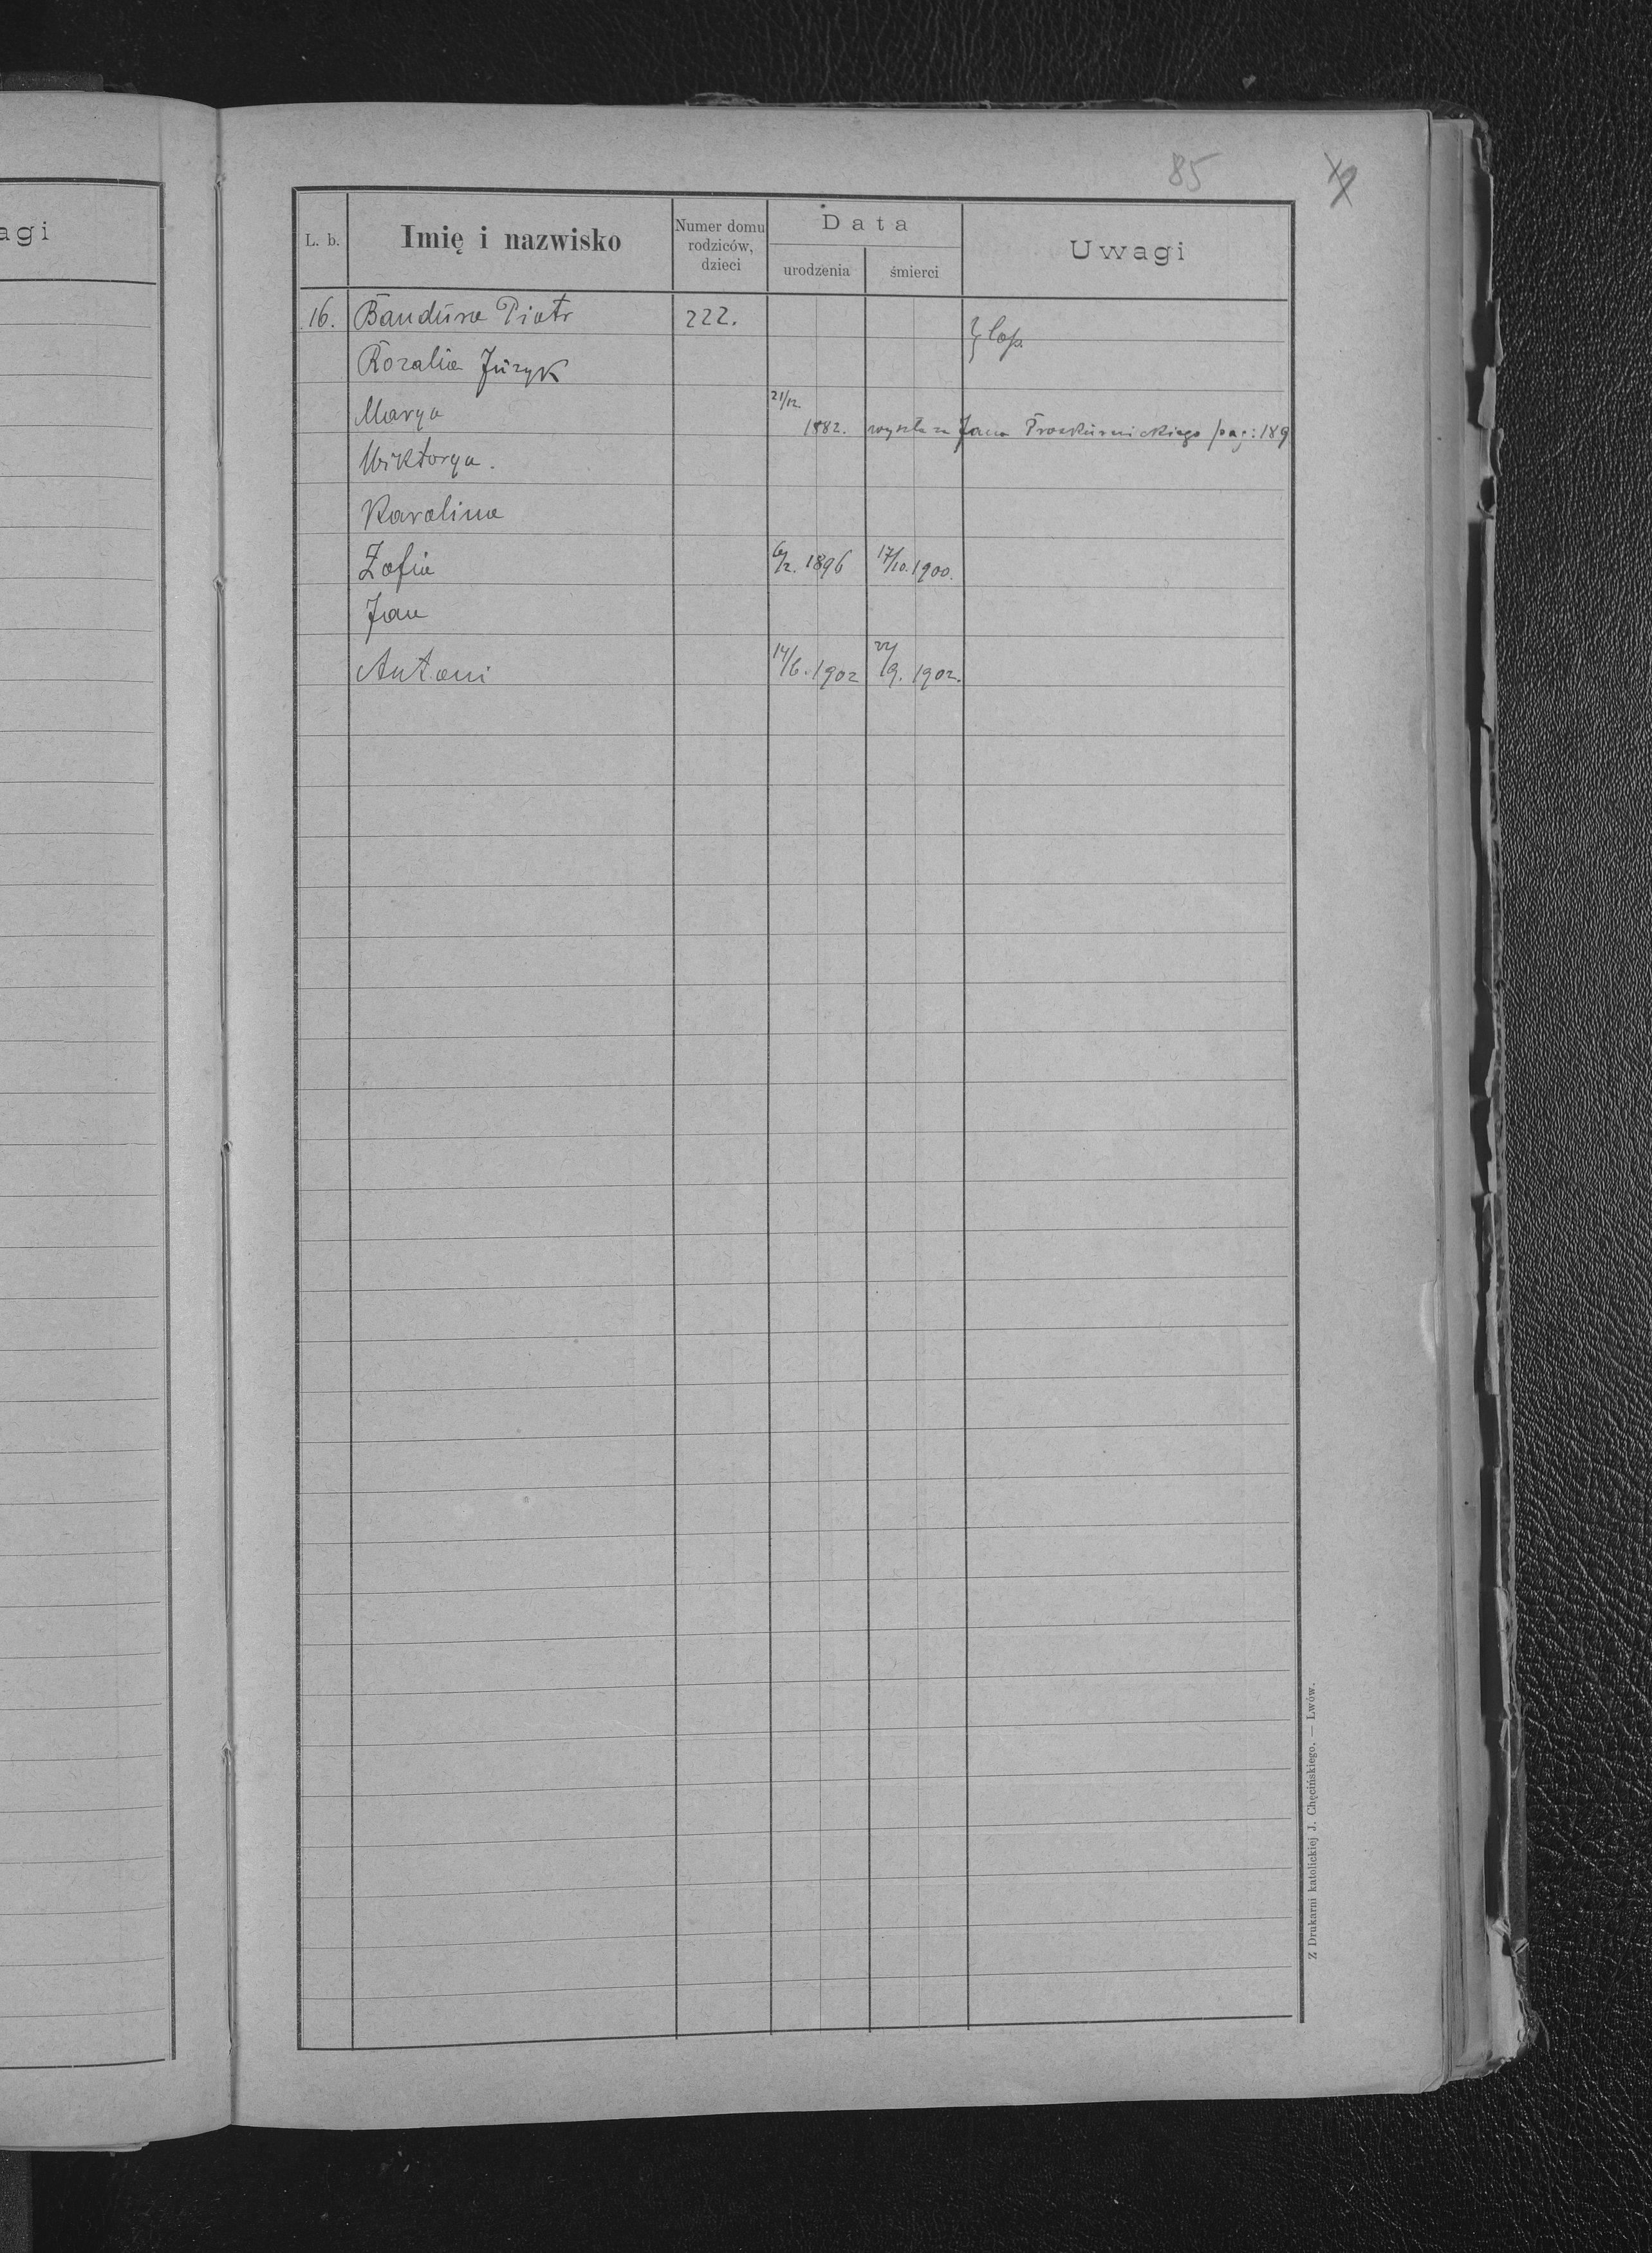 85
agi
L. b.
Imię i nazwisko
Numer domu rodziców, dzieci
Data
urodzenia
śmierci
Uwagi
16. Bandura Piotr 222.
Rozalia Juzyk
Marya 21/12. 1882. wyszła za Jana Proskurnickiego pag: 189
Wiktorya.
Karolina
Zofia 6/2. 1896 17/10. 1900.
Jan
Antoni 14/6. 1902 22/9. 1902.
Z Drukarni katolickiej J. Chęcińskiego. — Lwów.